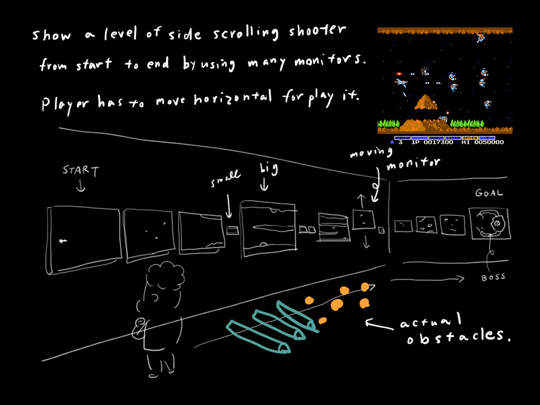 show a level of side scrolling shooter
from start to end by using many monitors.
Player has to move horizontal for play it.
3 1P 0017300 HI 0050000
moving
monitor
big
small
START
GOAL
BOSS
actual
obstacles.